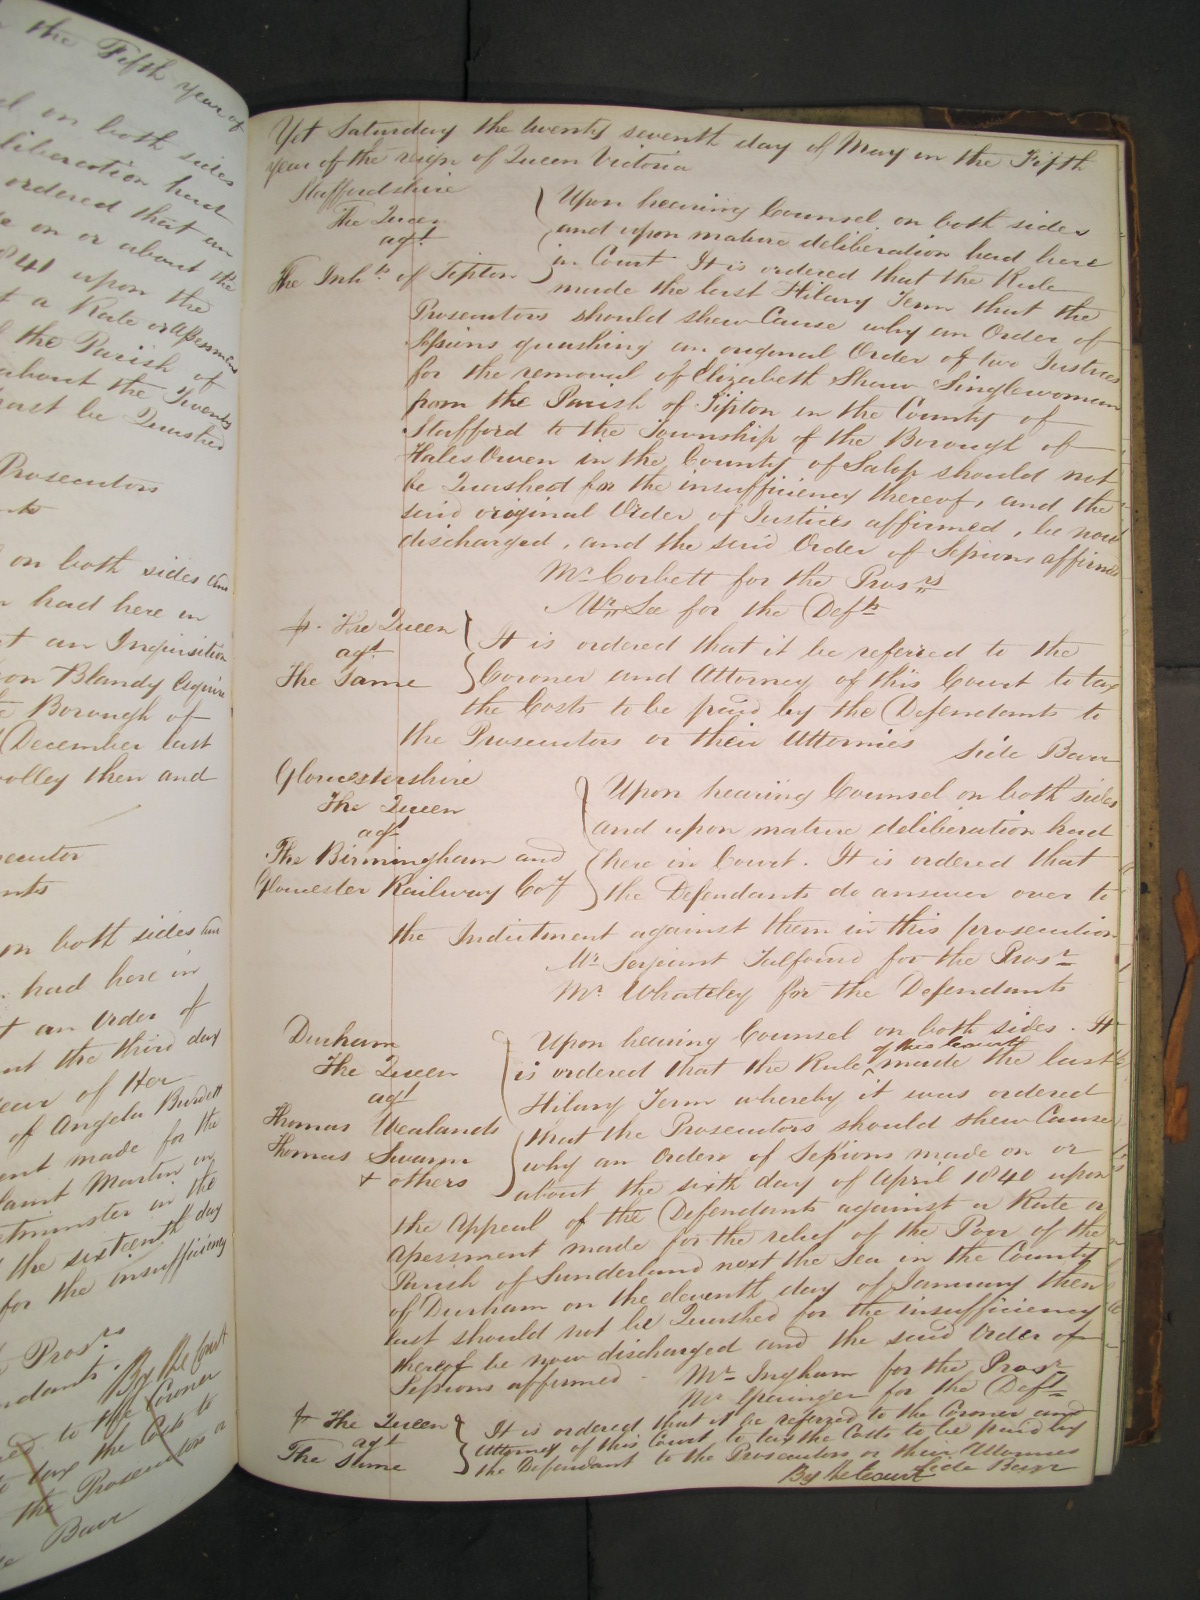 the Fifth year of
on both sides
deliberation had
ordered that an
on or about the
1841 upon the
a Rate or Assessment
the Parish of
about the Twenty
must be Quashed
Prosecutors
on both sides and
had here in
an Inquisition
Blandy Esquire
Borough of
December last
then and
on both sides and
had here in
an Order of
the third day
year of Her
of Angela Burdett
made for the
Saint Martin in
Westminster in the
the sixteenth day
for the insufficiency
Pros.rs
By the Court
to the Coroner
to tax the Costs to
the Prosecutors or
Barr
Yet Saturday the twenty seventh day of May in the Fifth
year of the reign of Queen Victoria
Staffordshire
The Queen
agt
The Inhts of Tipton
Upon hearing Counsel on both sides
and upon mature deliberation had here
in Court It is ordered that the Rule
made the last Hilary Term that the
Prosecutors should shew Cause why an Order of
Sessions quashing an original Order of two Justices
for the removal of Elizabeth Shaw Singlewoman
from the Parish of Tipton in the County of
Stafford to the Township of the Borough of
Hales Owen in the County of Salop should not
be Quashed for the insufficiency thereof, and the
said original Order of Justices affirmed, be now
discharged, and the said Order of Sessions affirmed
Mr Corbett for the Prosrs
Mr Lee for the Defts
The Queen
agt
The Same
It is ordered that it be referred to the
Coroner and Attorney of this Court to tax
the Costs to be paid by the Defendants to
the Prosecutors or their Attornies
Side Barr
Gloucestershire
The Queen
agt
The Birmingham and
Gloucester Railway Coy
Upon hearing Counsel on both sides
and upon mature deliberation had
here in Court. It is ordered that
the Defendants do answer over to
the Indictment against them in this prosecution
Mr Serjeant Talfourd for the Prosr
Mr Whateley for the Defendants
Durham
The Queen
agt
Thomas Wealands
Thomas Swann
& others
Upon hearing Counsel on both sides. It
is ordered that the Rule of this Court made the last
Hilary Term whereby it was ordered
that the Prosecutors should shew Cause
why an Order of Sessions made on or
about the sixth day of April 1840 upon
the Appeal of the Defendants against a Rate or
Assessment made for the relief of the Poor of the
Parish of Sunderland next the Sea in the County
of Durham on the eleventh day of January then
last should not be Quashed for the insufficiency
thereof be now discharged and the said Order of
Sessions affirmed
Mr Ingham for the Prosr
Mr Grainger for the Deft
The Queen
agt
The Same
It is ordered that it be referred to the Coroner and
Attorney of this Court to tax the Costs to be paid by
the Defendant to the Prosecutors or their Attornies
Side Barr
By the Court